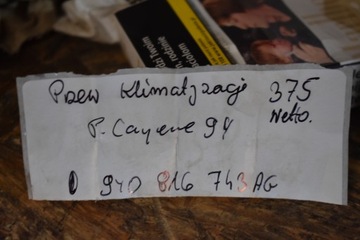 Przew Klimatyzacji 375
Netto.
P. Cayene 94
0 940 816 743 AG